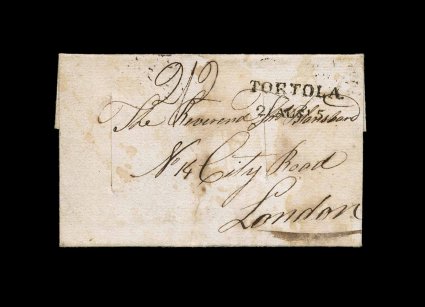 2/2
TORTOLA
The Reverend Jos Blanshard
No 14 City Road
London